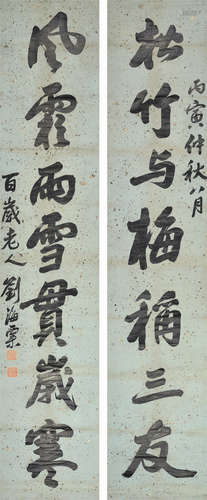 松竹与梅稱三友
丙寅仲秋八月
風霜雨雪貫歲寒
百歲老人劉海粟